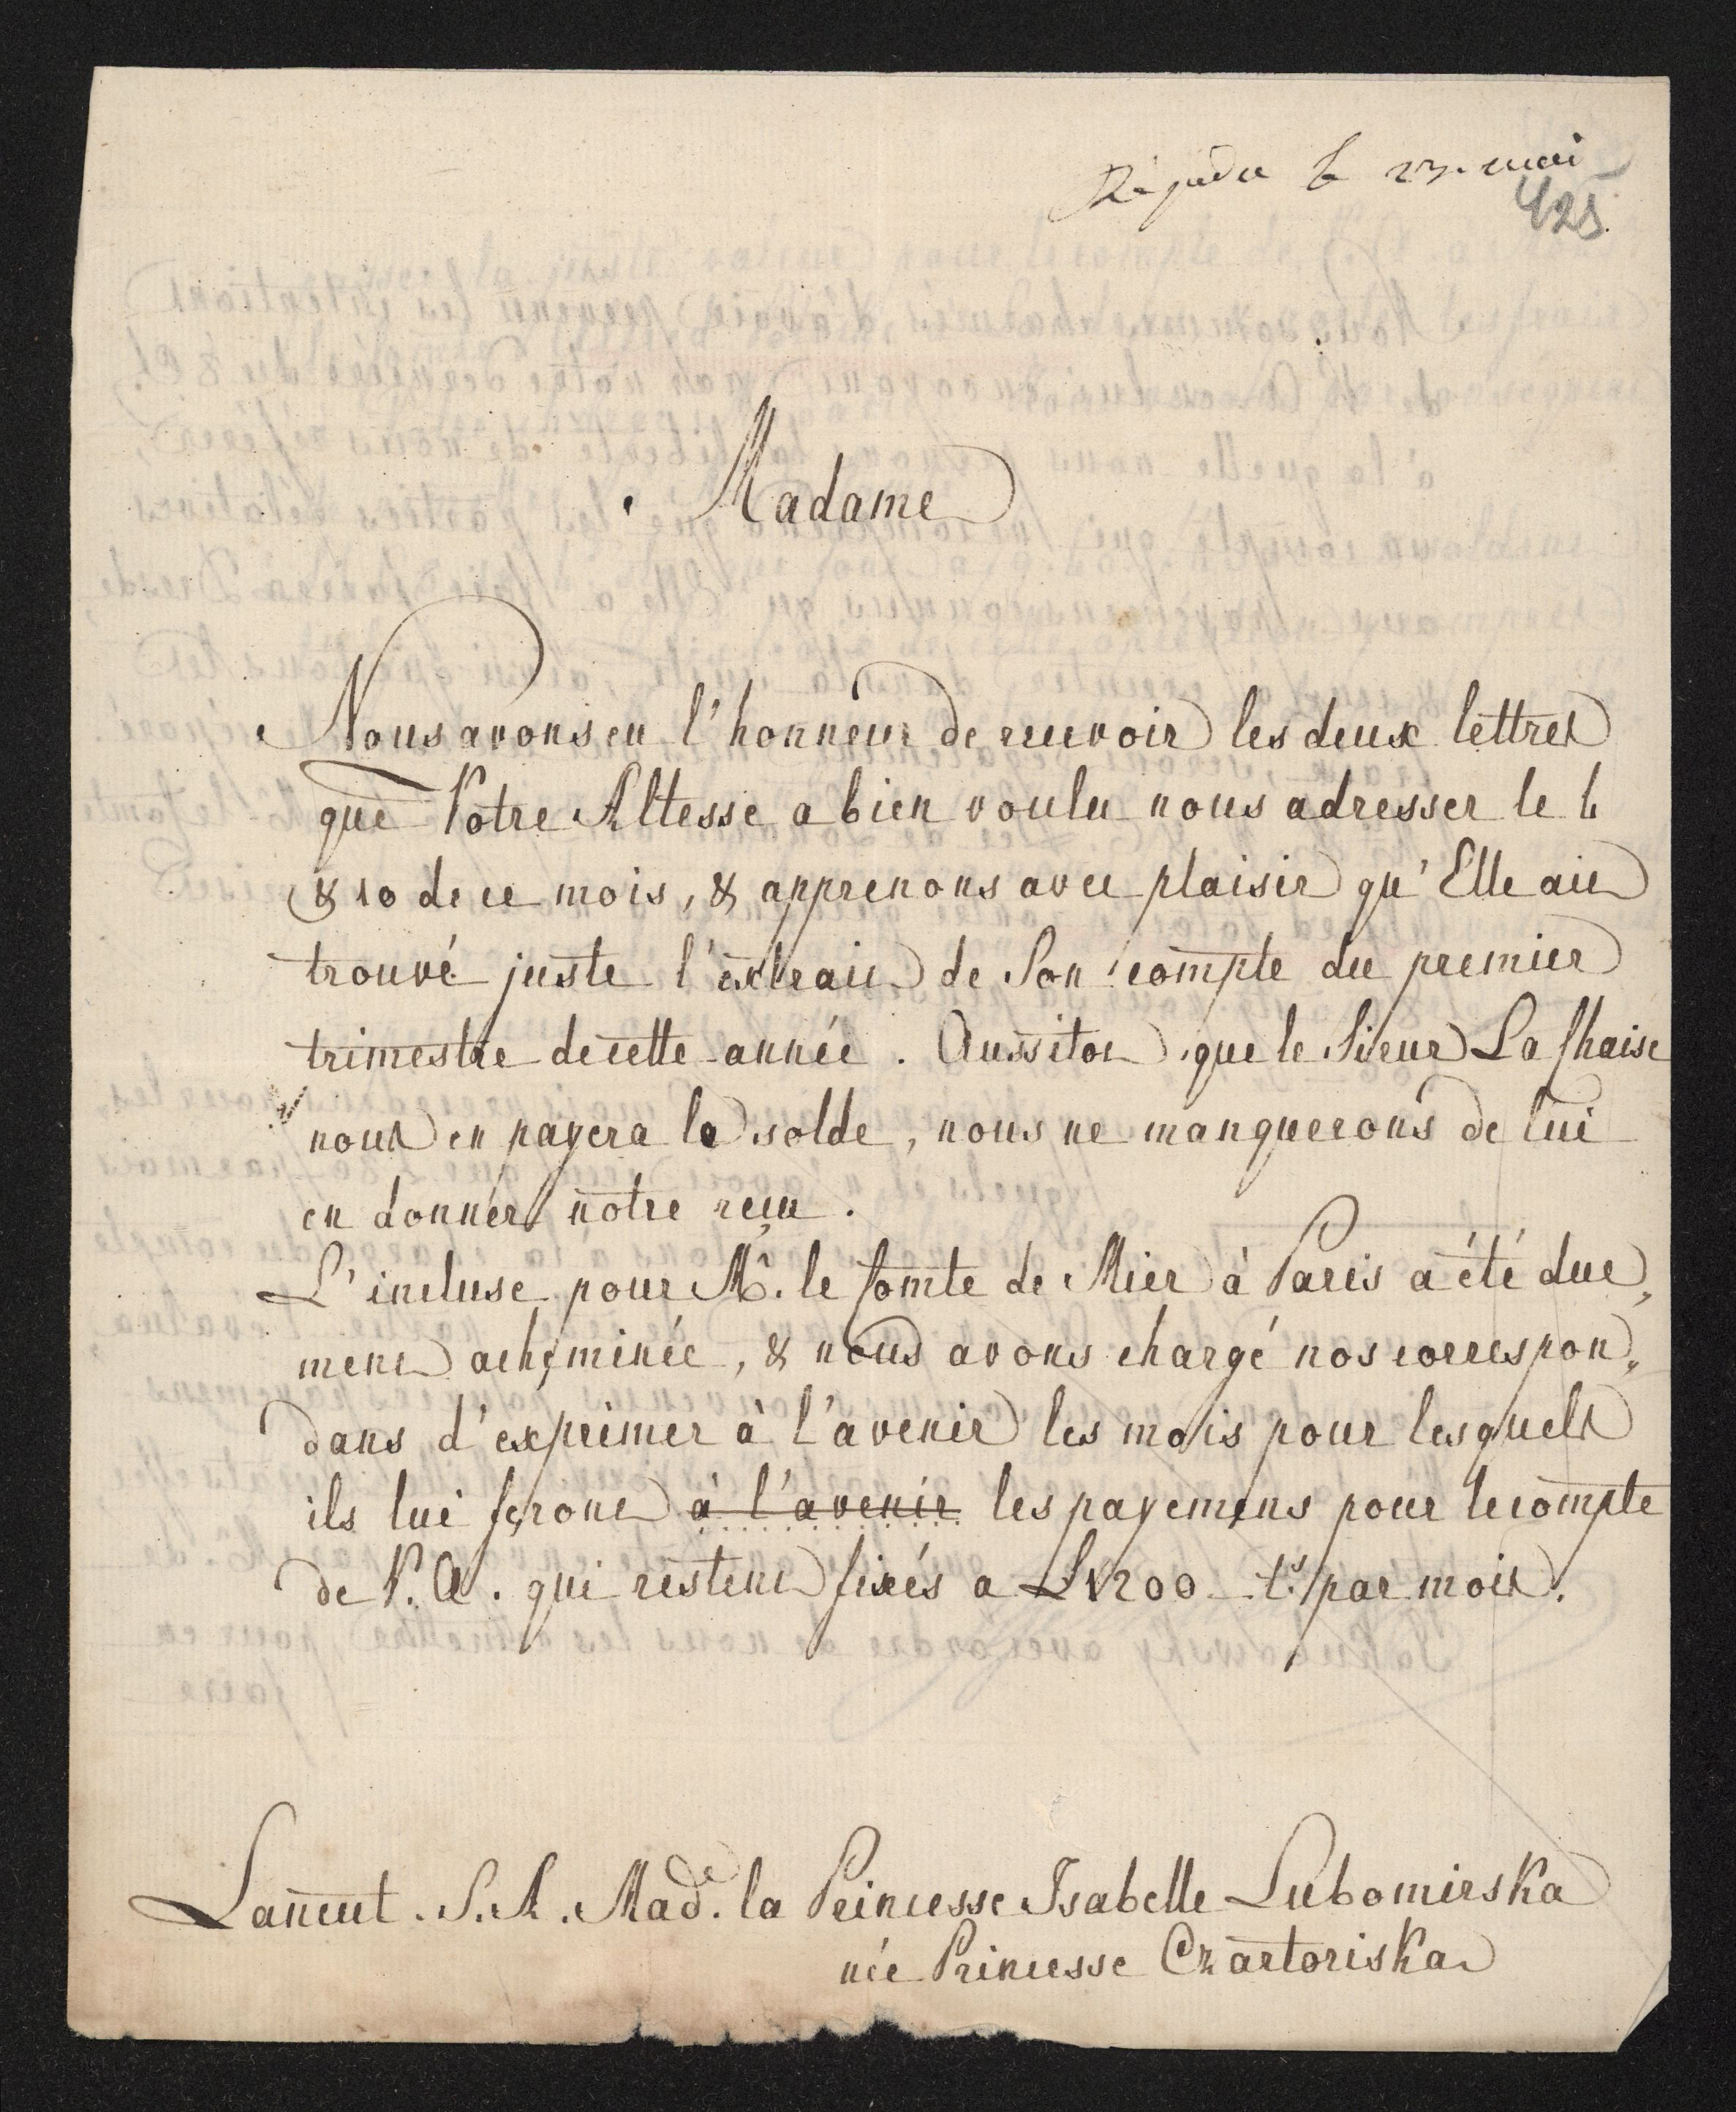 Répondu le 27. mai
425.
Madame
Nous avons eu l'honneur de recevoir les deux lettres
que Votre Altesse a bien voulu nous adresser le 6
& 10 de ce mois, & apprenons avec plaisir qu'Elle ait
trouvé juste l'extrait de Son compte du premier
trimestre de cette année. Aussitot que le Sieur La Chaise
nous en payera le solde, nous ne manquerons de lui
en donner notre reçu.
L'incluse pour Mr. le Comte de Mier à Paris a été due„
ment acheminée, & nous avons chargé nos correspon„
dans d'exprimer à l'avenir les mois pour lesquels
ils lui feront à l'avenir les payemens pour le compte
de V. A. qui restent fixés a L 1200 ts par mois.
Lancut. S. A. Made. la Princesse Isabelle Lubomirska
née Princesse Czartoriska